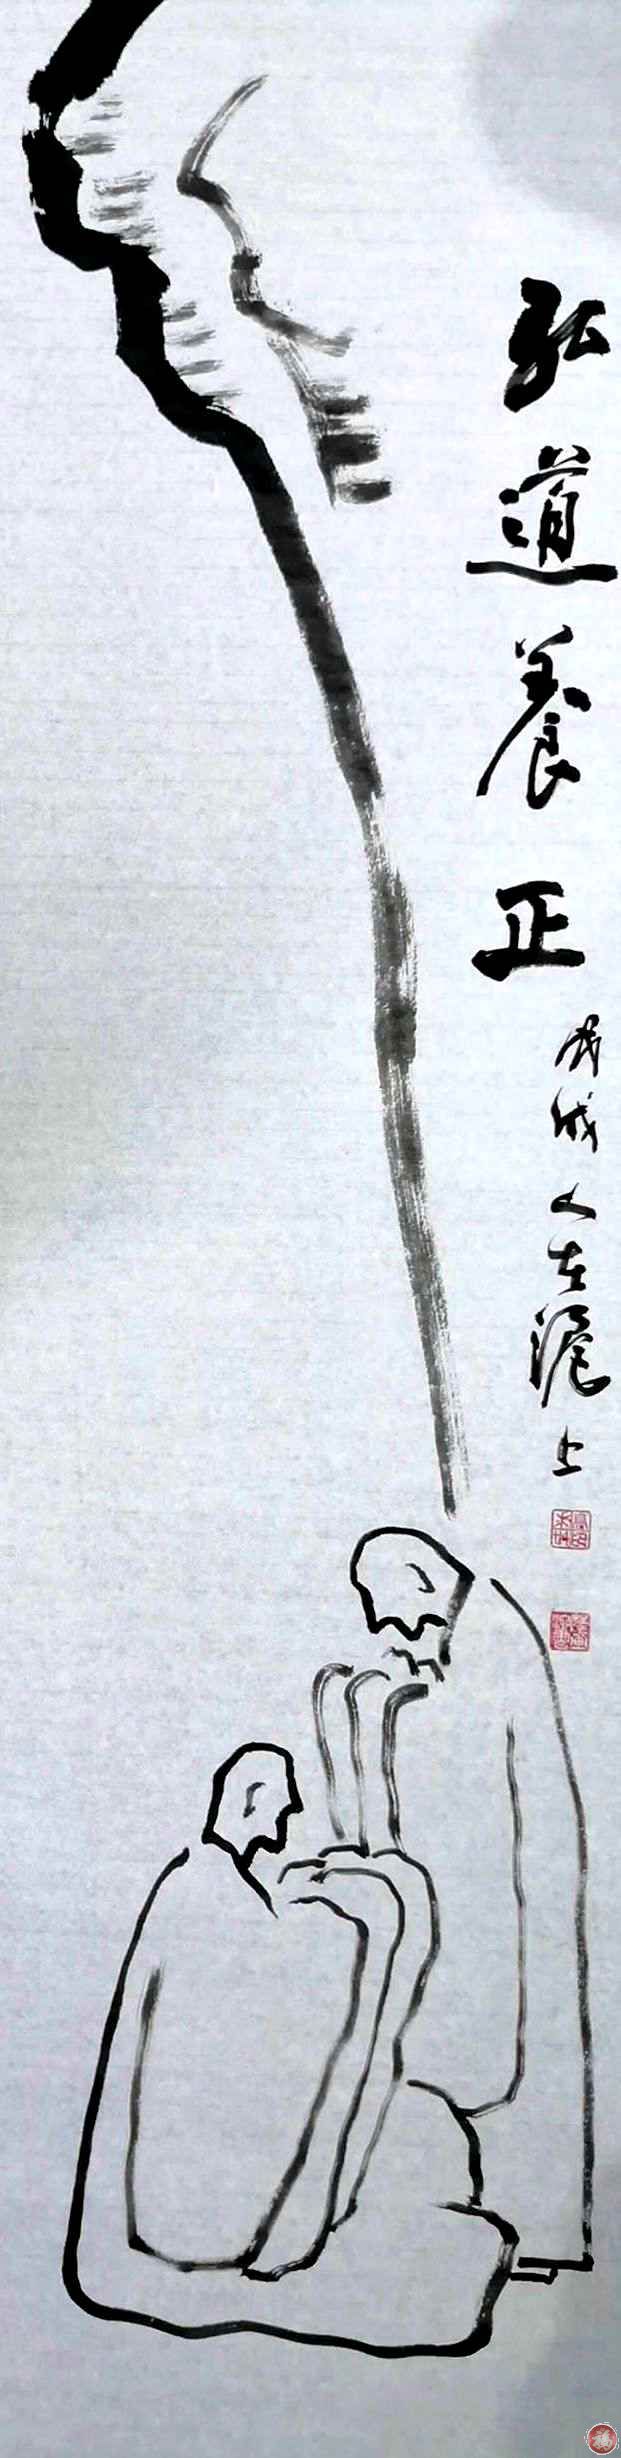 弘道養正
戊戌人在滬上